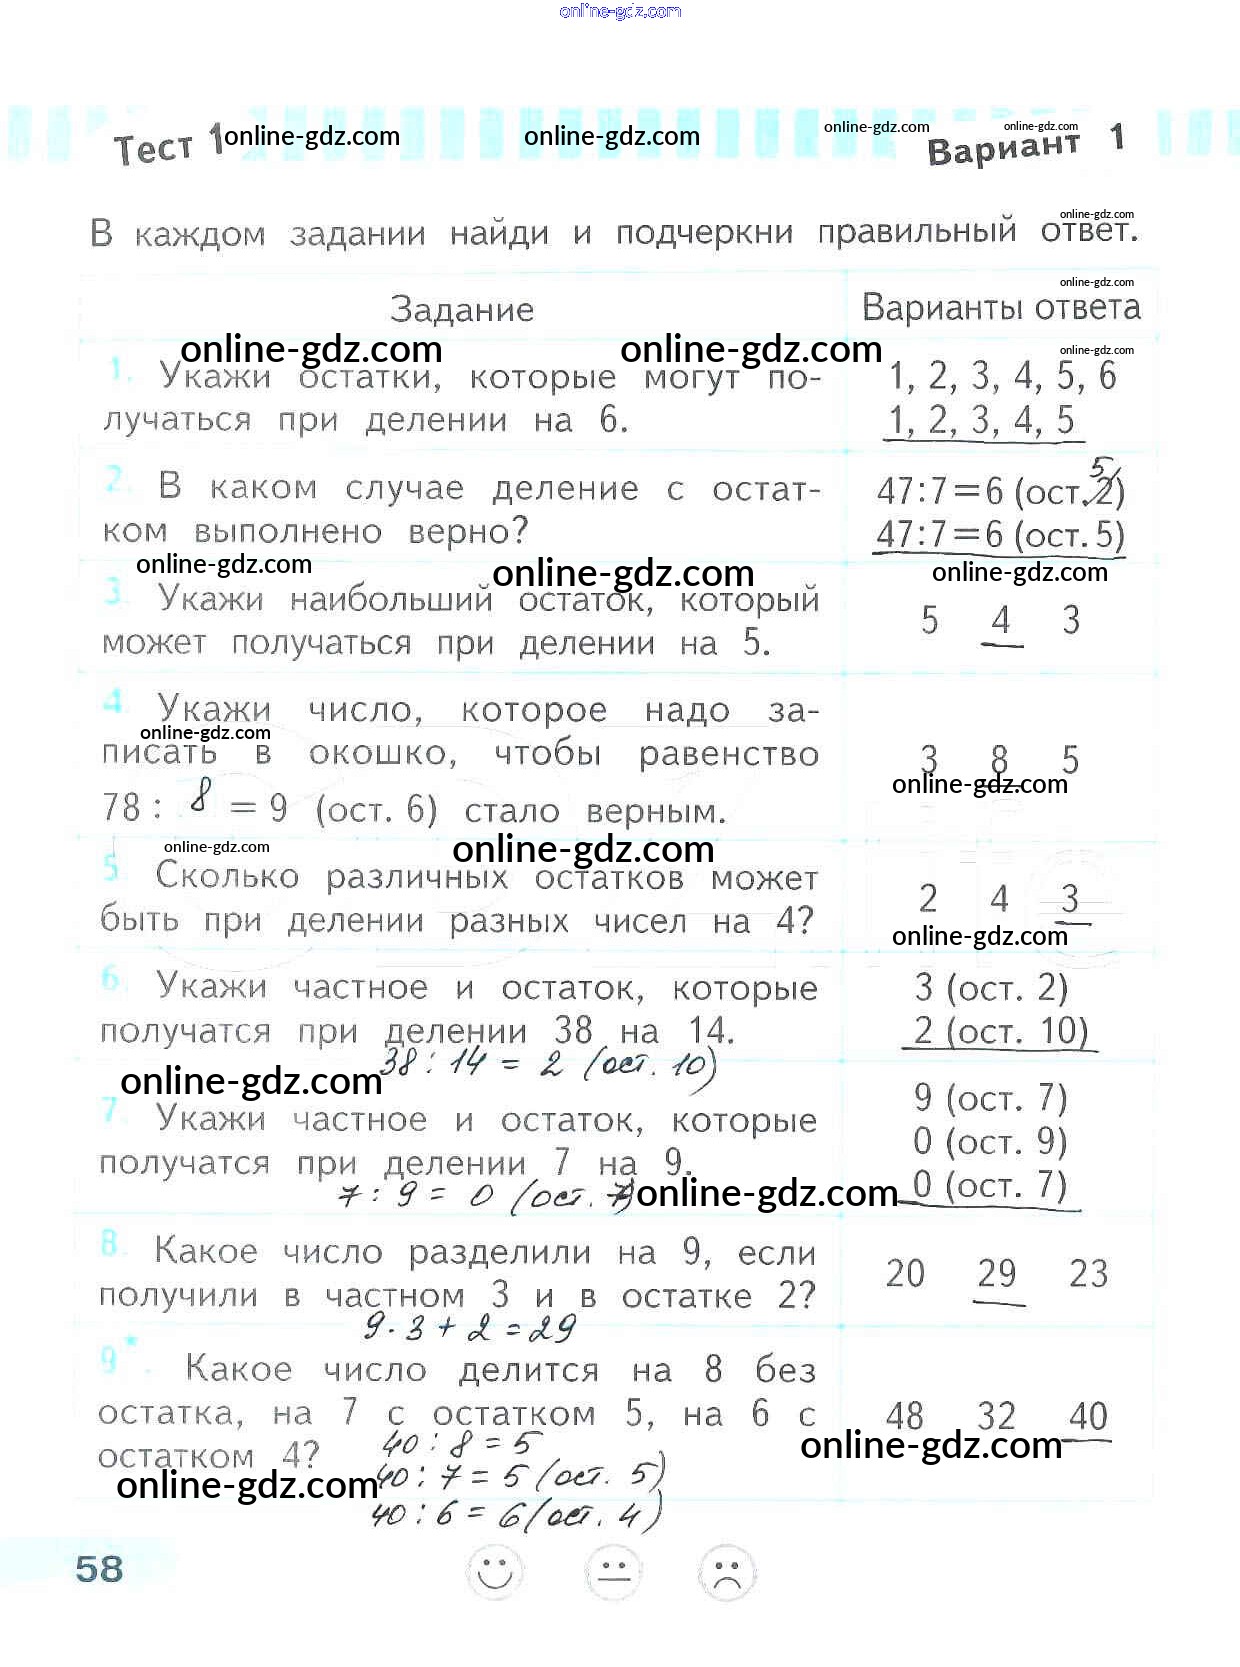 online-gdz.com
Тест 1 online-gdz.com online-gdz.com online-gdz.com online-gdz.com
Вариант 1
online-gdz.com
В каждом задании найди и подчеркни правильный ответ.
online-gdz.com
Задание Варианты ответа
online-gdz.com online-gdz.com online-gdz.com
1. Укажи остатки, которые могут по- 1, 2, 3, 4, 5, 6
лучаться при делении на 6. 1, 2, 3, 4, 5
5
2. В каком случае деление с остат- 47:7=6 (ост.2)
ком выполнено верно? 47:7=6 (ост.5)
online-gdz.com online-gdz.com online-gdz.com
3. Укажи наибольший остаток, который
может получаться при делении на 5. 5 4 3
4. Укажи число, которое надо за-
online-gdz.com
писать в окошко, чтобы равенство 3 8 5
online-gdz.com
78 : 8 = 9 (ост. 6) стало верным.
online-gdz.com online-gdz.com
5. Сколько различных остатков может
быть при делении разных чисел на 4? 2 4 3
online-gdz.com
6. Укажи частное и остаток, которые 3 (ост. 2)
получатся при делении 38 на 14. 2 (ост. 10)
38 : 14 = 2 (ост. 10)
online-gdz.com
9 (ост. 7)
7. Укажи частное и остаток, которые 0 (ост. 9)
получатся при делении 7 на 9. 0 (ост. 7)
7 : 9 = 0 (ост. 7) online-gdz.com
8. Какое число разделили на 9, если
получили в частном 3 и в остатке 2? 20 29 23
9 · 3 + 2 = 29
9*. Какое число делится на 8 без
остатка, на 7 с остатком 5, на 6 с 48 32 40
остатком 4? 40 : 8 = 5 online-gdz.com
online-gdz.com 40 : 7 = 5 (ост. 5)
40 : 6 = 6 (ост. 4)
58